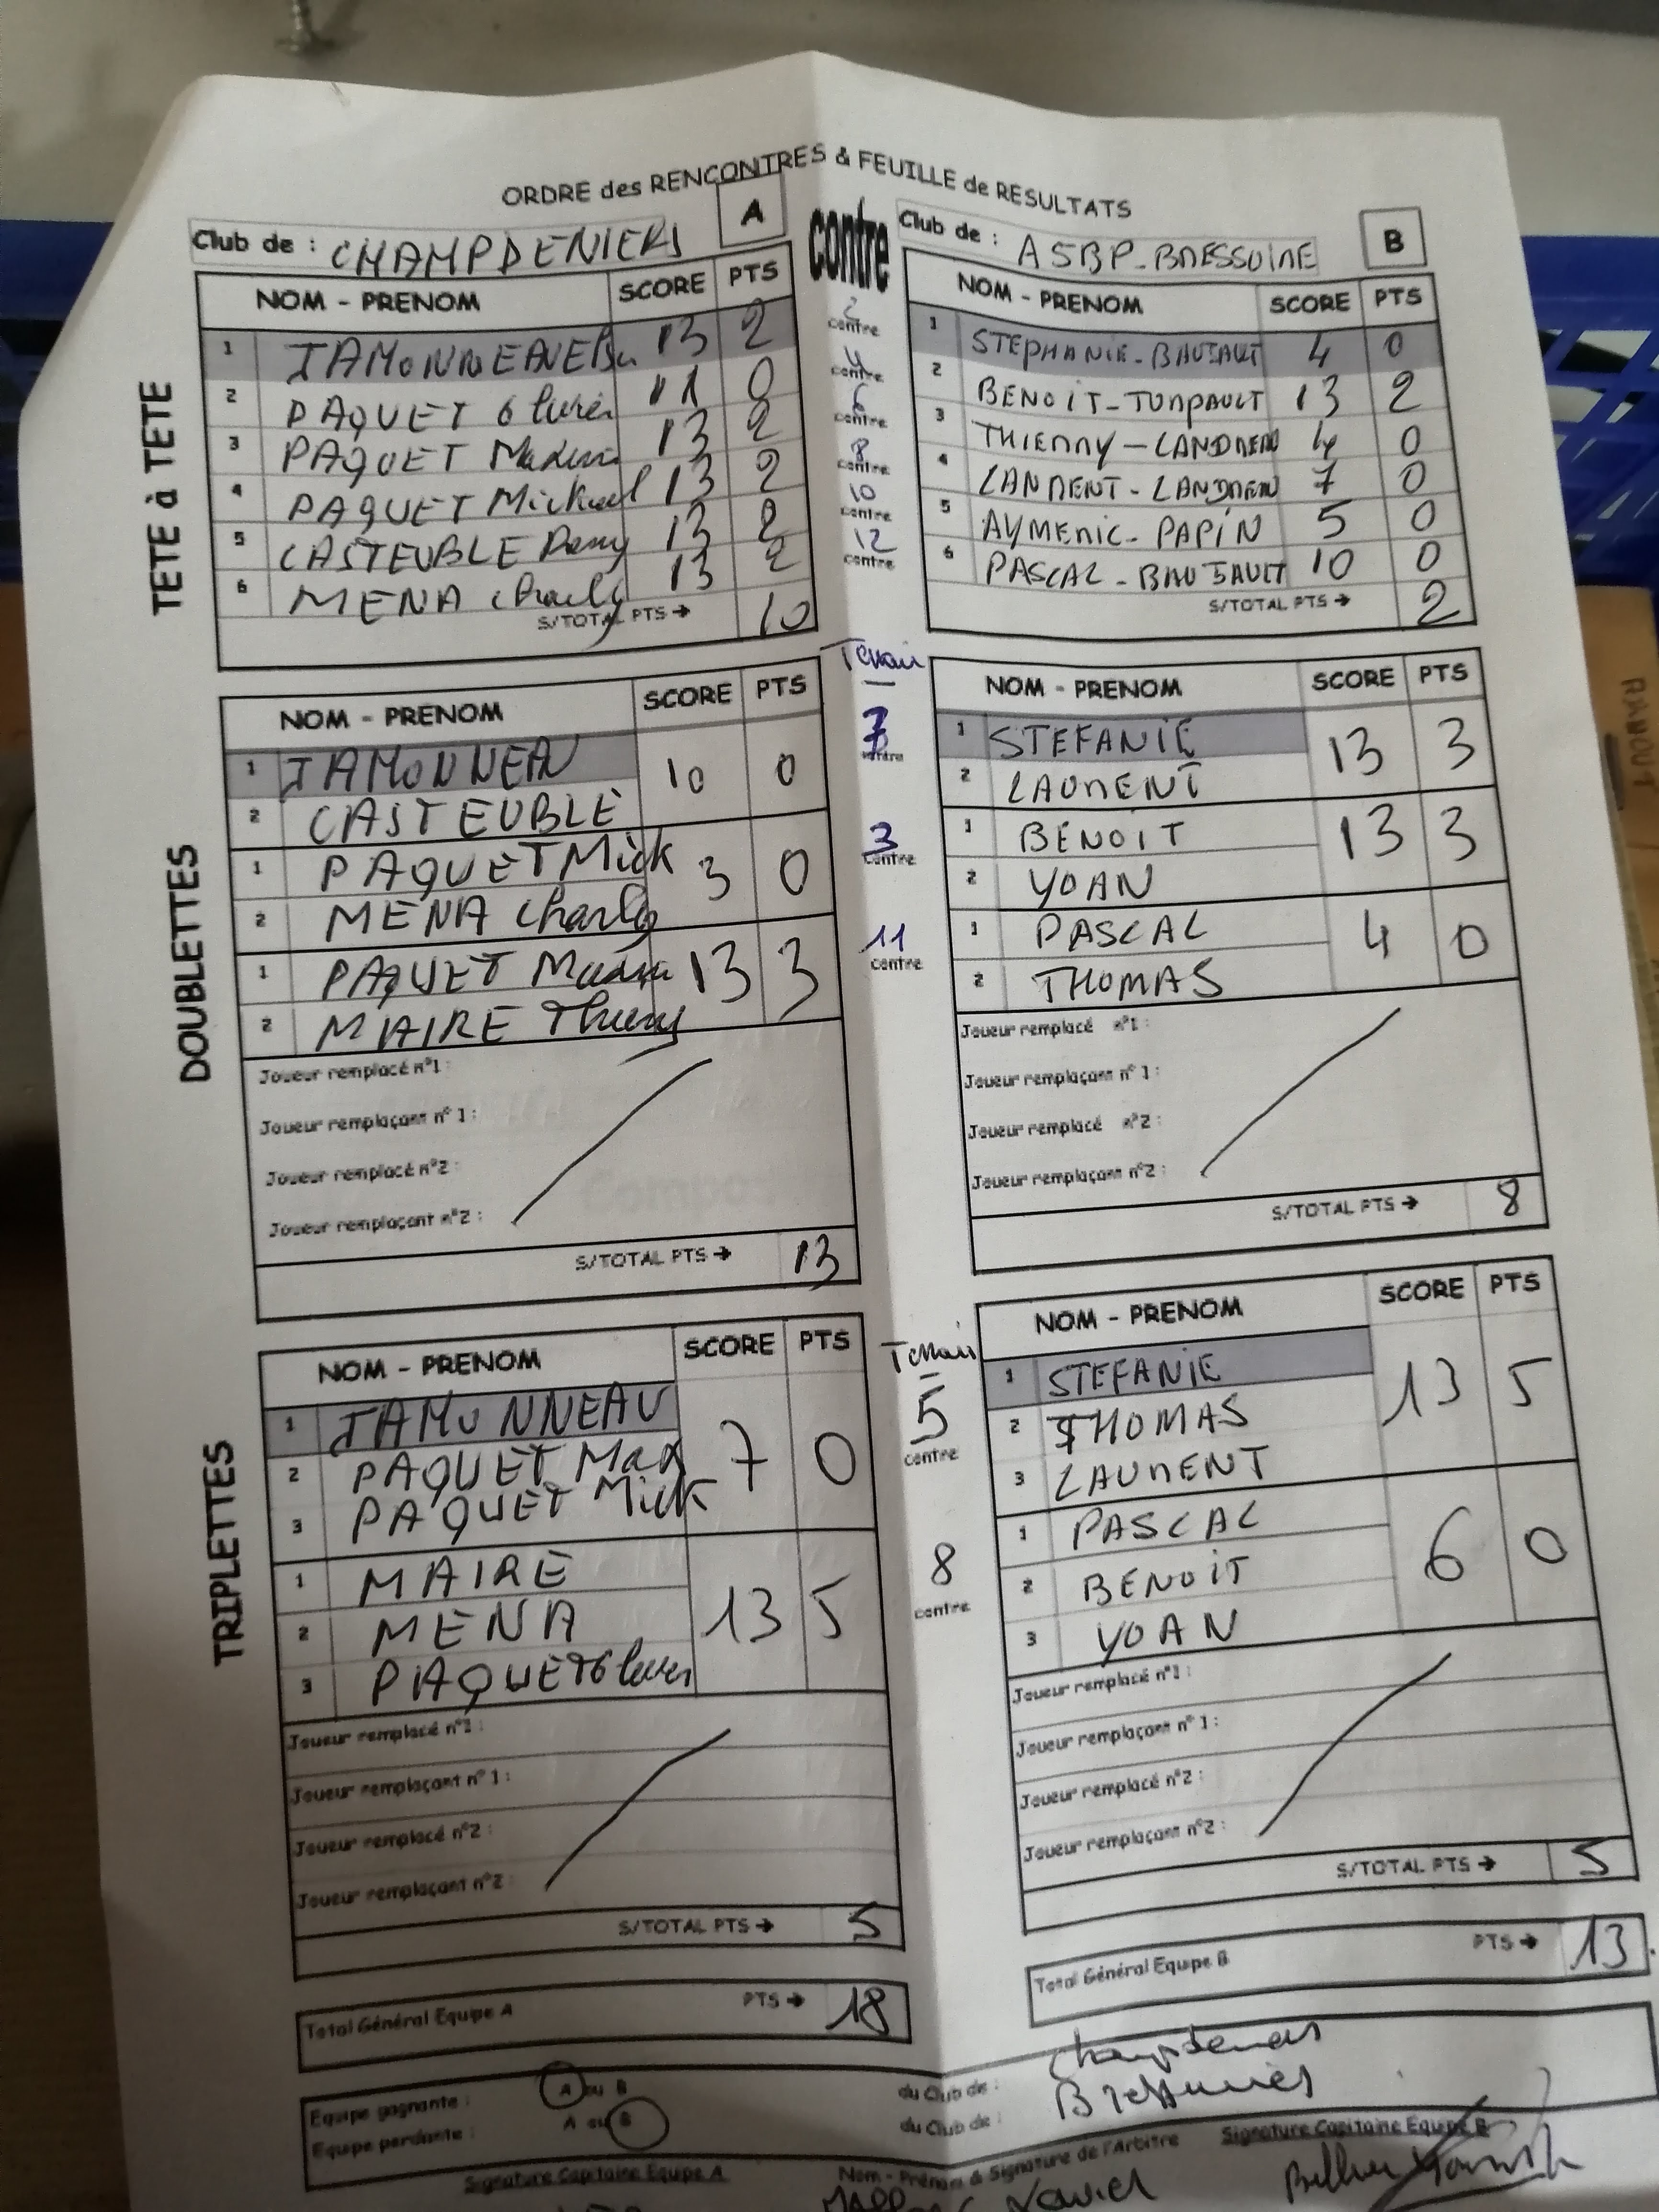 ORDRE des RENCONTRES & FEUILLE de RESULTATS
Club de : CHAMPDENIERS A contre Club de : ASBP-BRESSUIRE B
TETE à TETE
NOM - PRENOM SCORE PTS
1 JAMONNEAU 13 2
2 PAQUET Olivier 11 0
3 PAQUET Maxime 13 2
4 PAQUET Mickael 13 2
5 CASTEUBLE Dany 13 2
6 MENA Charly 13 2
S/TOTAL PTS → 10
2 contre
4 contre
6 contre
8 contre
10 contre
12 contre
NOM - PRENOM SCORE PTS
1 STEPHANIE-BAUJAULT 4 0
2 BENOIT-TURPAULT 13 2
3 THIERRY-LANDREAU 4 0
4 LAURENT-LANDREAU 7 0
5 AYMERIC-PAPIN 5 0
6 PASCAL-BAUJAULT 10 0
S/TOTAL PTS → 2
DOUBLETTES
NOM - PRENOM SCORE PTS
1 JAMONNEAU 10 0
2 CASTEUBLE
1 PAQUET Mick 3 0
2 MENA Charly
1 PAQUET Maxime 13 3
2 MAIRE Thierry
Joueur remplacé n°1 :
Joueur remplaçant n° 1 :
Joueur remplacé n°2 :
Joueur remplaçant n°2 :
S/TOTAL PTS → 13
Terrain
7 contre
3 contre
11 contre
NOM - PRENOM SCORE PTS
1 STEFANIE 13 3
2 LAURENT
1 BENOIT 13 3
2 YOAN
1 PASCAL 4 0
2 THOMAS
Joueur remplacé n°1 :
Joueur remplaçant n° 1 :
Joueur remplacé n°2 :
Joueur remplaçant n°2 :
S/TOTAL PTS → 8
TRIPLETTES
NOM - PRENOM SCORE PTS
1 JAMONNEAU 7 0
2 PAQUET Max
3 PAQUET Mick
1 MAIRE 13 5
2 MENA
3 PAQUET Olivier
Joueur remplacé n°1 :
Joueur remplaçant n° 1 :
Joueur remplacé n°2 :
Joueur remplaçant n°2 :
S/TOTAL PTS → 5
Terrain
5 contre
8 contre
NOM - PRENOM SCORE PTS
1 STEFANIE 13 5
2 THOMAS
3 LAURENT
1 PASCAL 6 0
2 BENOIT
3 YOAN
Joueur remplacé n°1 :
Joueur remplaçant n° 1 :
Joueur remplacé n°2 :
Joueur remplaçant n°2 :
S/TOTAL PTS → 5
Total Général Equipe A PTS → 18
Total Général Equipe B PTS → 13
Equipe gagnante : A ou B du Club de : Champdeniers
Equipe perdante : A ou B du Club de : Bressuires
Signature Capitaine Equipe A
Nom - Prénom & Signature de l'Arbitre
Signature Capitaine Equipe B
Xavier
RANOUT